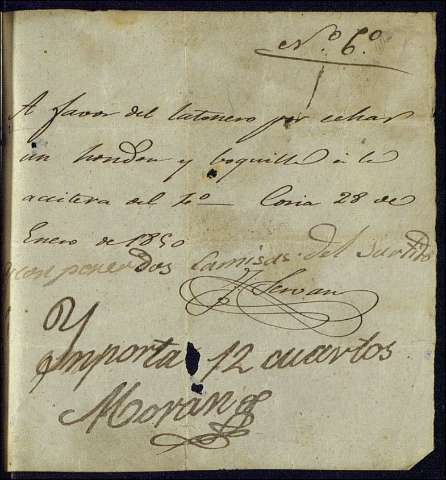 N.º 6.º
A favor del latonero por echar
un hondon y boquilla à la
aceitera del Lº Coria 28 de
Enero de 1850
y componer dos Camisas del Surtido
Servan
Ymporta 12 cuartos
Moran